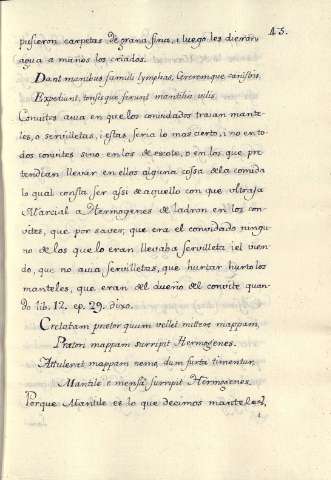 43.
pusieron carpetas de grana fina, i luego les dieron
agua a manos los criados.
Dant manibus famuli lymphas, Cereremque canistris
Expediunt, tonsisque ferunt mantilia villis.
Convites avia en que los convidados traian mante-
les, o servilletas, i estas seria lo mas cierto, i no en to-
dos convites sino en los de escote, o en los que pre-
tendian llevar en ellos alguna cossa de la comida
lo qual consta ser assi de aquello con que ultraja
Marcial a Hermogenes de ladron en los con-
vites, que por saver, que era el convidado ningu-
no de los que lo eran llevaba servilleta i el vien-
do, que no avia servilletas, que hurtar hurto los
manteles, que eran del dueño del convite quan-
do lib. 12. ep. 29. dixo.
Cretatam praetor quum vellet mittere mappam,
Praetori mappam surripit Hermogenes.
Attulerat mappam nemo, dum furta timentur,
Mantile e mensa surripit Hermogenes.
Porque Mantile es lo que decimos manteles,